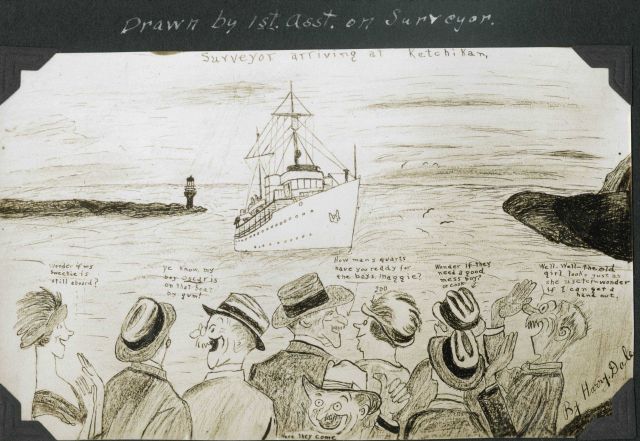 Drawn by 1st. Asst. on Surveyor.
Surveyor arriving at Ketchikan,
Wonder if my
sweetie is
still aboard?
ye know, my
boy oscar is
on that boat
by gum!
How many quarts
have you reddy for
the boys, Maggie?
200
Wonder if they
need a good
mess boy?
or cook
Well-Well-the old
girl looks just as
she useter-wonder
if I can get a
hand out.
here they come
By Harry Dale